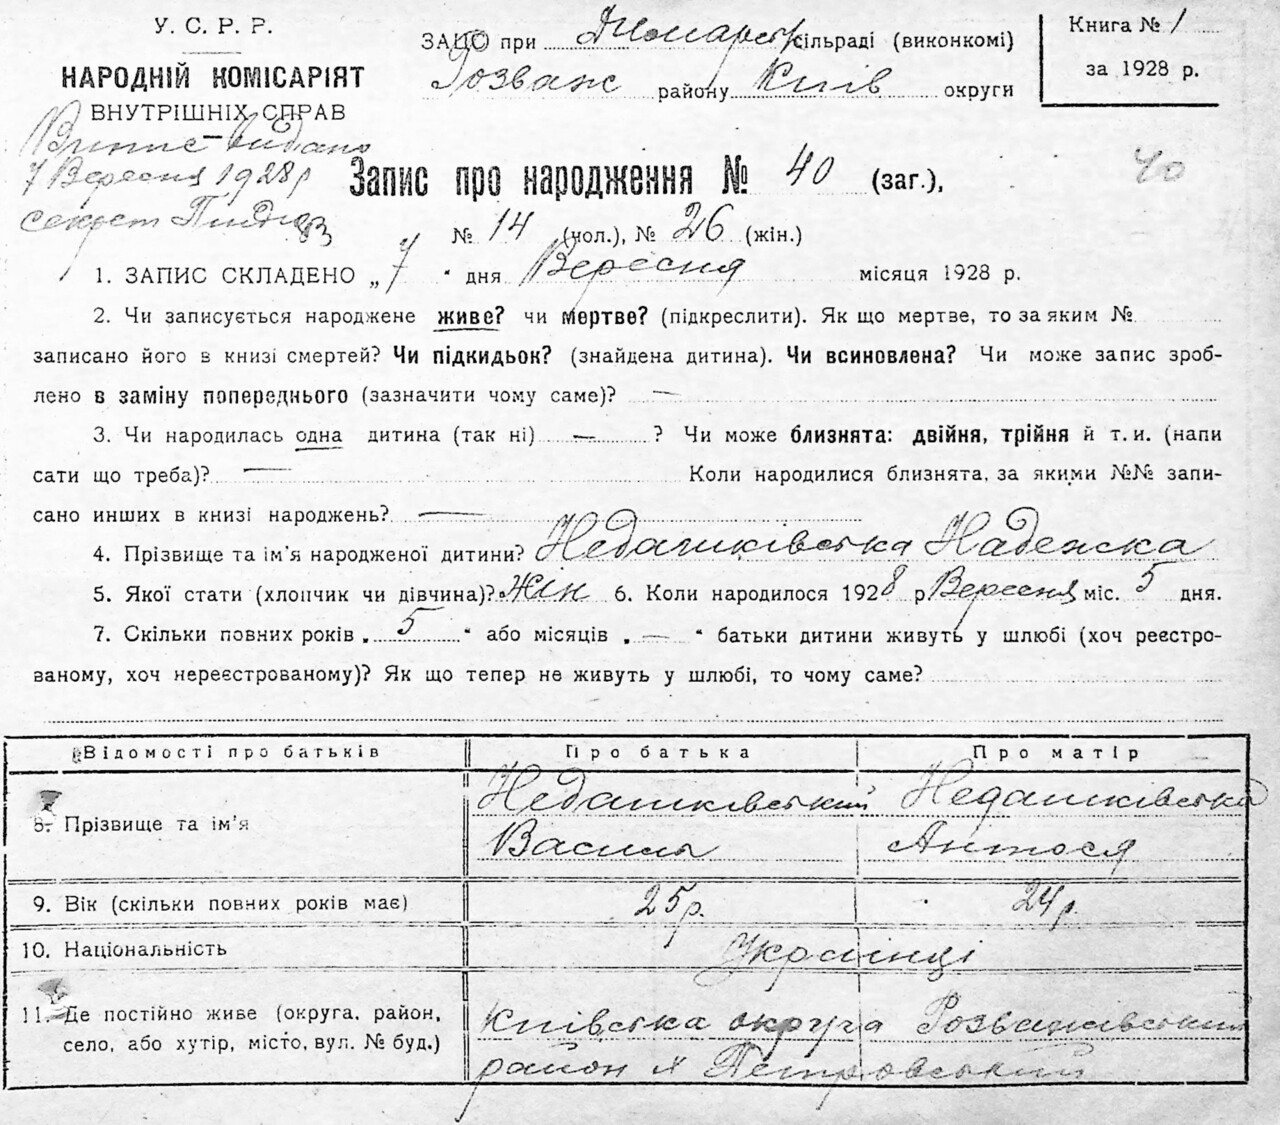 У. С. Р. Р.
НАРОДНІЙ КОМІСАРІЯТ
ВНУТРІШНІХ СПРАВ
Випис видано
7 Вересня 1928 р
секрет
ЗАЦС при сільраді (виконкомі)
Розваж району Київ округи
Книга № 1
за 1928 р.
Запис про народження № 40 (заг.),
40
№ 14 (чол.), № 26 (жін.)
1. ЗАПИС СКЛАДЕНО „ 7 “ дня Вересня місяця 1928 р.
2. Чи записується народжене живе? чи мертве? (підкреслити). Як що мертве, то за яким №
записано його в книзі смертей? Чи підкидьок? (знайдена дитина). Чи всиновлена? Чи може запис зроб-
лено в заміну попереднього (зазначити чому саме)? —
3. Чи народилась одна дитина (так ні) — ? Чи може близнята: двійня, трійня й т. и. (напи
сати що треба)? — Коли народилися близнята, за якими №№ запи-
сано инших в книзі народжень? —
4. Прізвище та ім'я народженої дитини? Недашківська Надежка
5. Якої стати (хлопчик чи дівчина)? жін 6. Коли народилося 1928 р Вересня міс. 5 дня.
7. Скільки повних років „ 5 “ або місяців „ — “ батьки дитини живуть у шлюбі (хоч реєстро-
ваному, хоч нереєстрованому)? Як що тепер не живуть у шлюбі, то чому саме?
Відомості про батьків Про батька Про матір
8. Прізвище та ім'я Недашківський Василь Недашківська Антося
9. Вік (скільки повних років має) 25 р. 24 р.
10. Національність Українці
11. Де постійно живе (округа, район,
село, або хутір, місто, вул. № буд.)
Київська округа Розважівський
район х Петровський